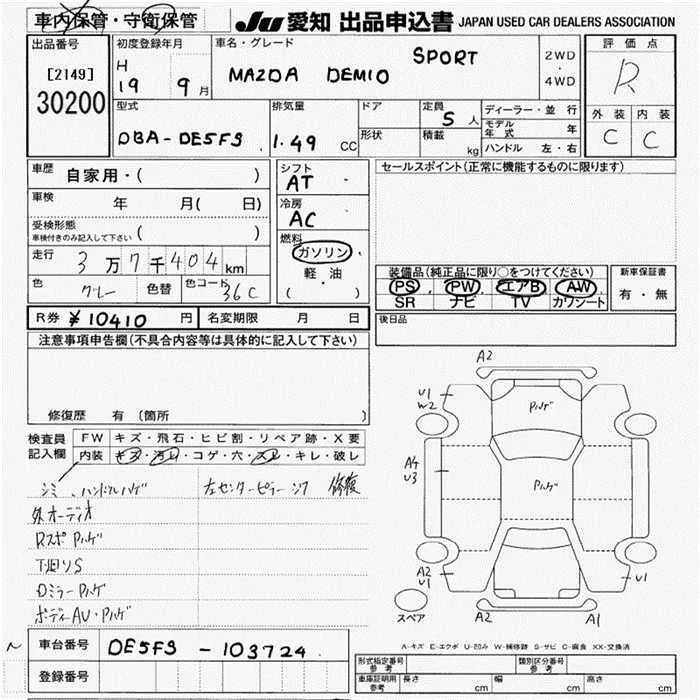 車内保管・守衛保管
JU 愛知 出品申込書 JAPAN USED CAR DEALERS ASSOCIATION
出品番号
[2149]
30200
初度登録年月
H
19 9月
車名・グレード
MAZDA DEMIO SPORT
2WD
・
4WD
評価点
R
外装 内装
C C
型式
DBA-DE5FS
排気量
1.49 CC
ドア
形状
定員
5 人
積載
kg
ディーラー・並行
モデル
年式
年
ハンドル 左・右
車歴
自家用・( )
車検
年 月( 日)
受検形態
車検付きのみ記入して下さい ( )
走行
3万7千404km
色
グレー
色替
色コード
36C
シフト
AT
冷房
AC
燃料
ガソリン
・
軽・油
( )
セールスポイント(正常に機能するものに限ります)
装備品(純正品に限り○をつけてください)
PS PW エアB AW
SR ナビ TV カワシート
新車保証書
有・無
R券 ¥10410 円
名変期限 月 日
後日品
注意事項申告欄(不具合内容等は具体的に記入して下さい)
修復歴 有(箇所 )
検査員
記入欄
FW キズ・飛石・ヒビ割・リペア跡・X要
内装 キズ・汚レ・コゲ・穴・スレ・キレ・破レ
シミ、ハンドルハゲ 左センターピラー 修復
外オーディオ
Rスポハゲ
Dミラーハゲ
ボディーAU・Pハゲ
A2
U1
W2
Pハゲ
A4
U3
Pハゲ
A2
U1
U1
スペア
A2
A1
A-キズ E-エクボ U-凹み W-補修跡 S-サビ C-腐食 XX-交換済
車台番号
DE5FS-103724
登録番号
形式指定番号
参考
類別区分番号
参考
車庫証明用
参考
長さ cm 幅 cm 高さ cm